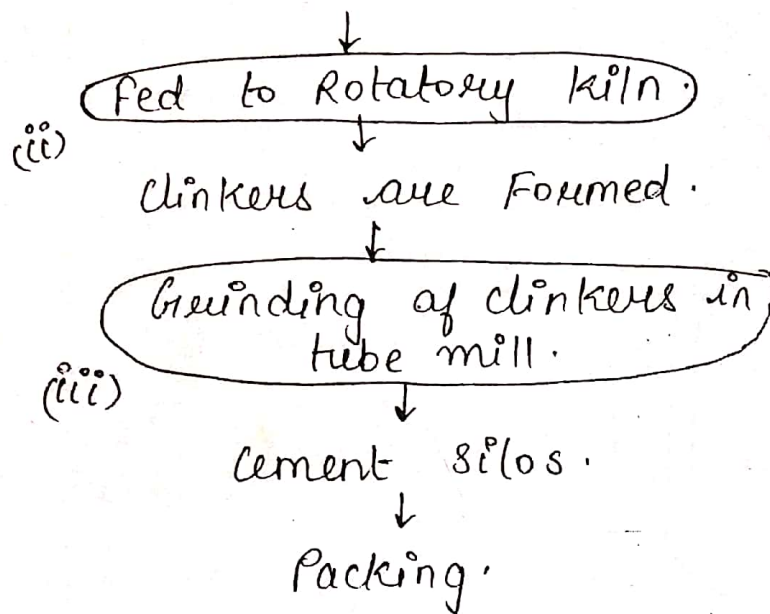 Fed to Rotatory kiln.
(ii)
Clinkers are Formed.
Grinding of clinkers in
tube mill.
(iii)
Cement silos.
Packing.